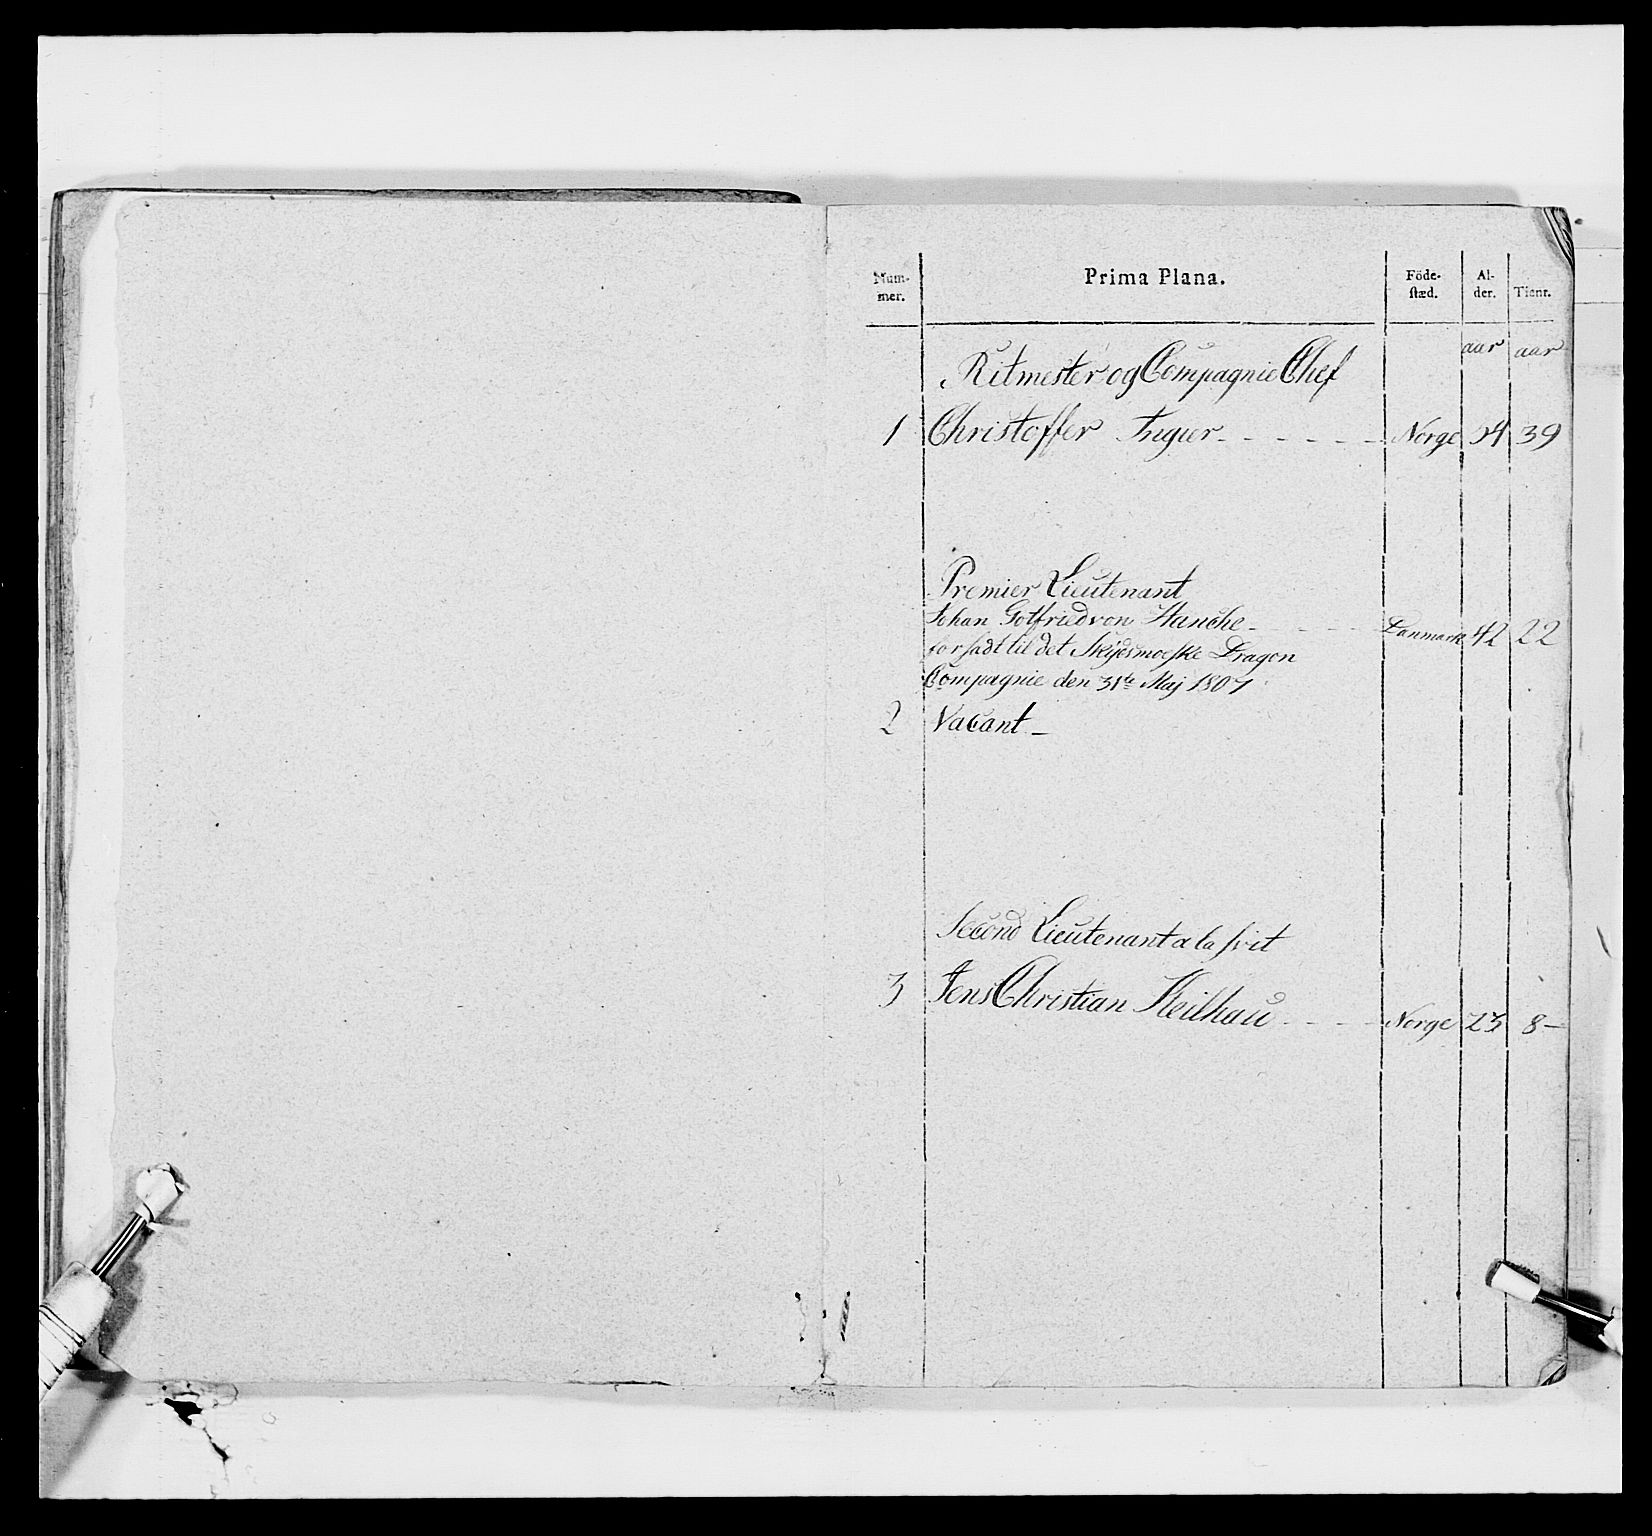 Num-
mer.
Prima Plana.
Föde-
stæd.
Al-
der.
Tient.
aar aar
Ritmester og Compagnie Chef
1 Christoffer Ingier Norge 54 39
Premier Lieutenant
Johan Gotfried von Hanche Danmark 42 22
forsadt til det Skydsmoeske Dragon
Compagnie den 31te Maj 1807
2 Vacant
Second Lieutenant a la svit
3 Jens Christian Keilhau Norge 23 8